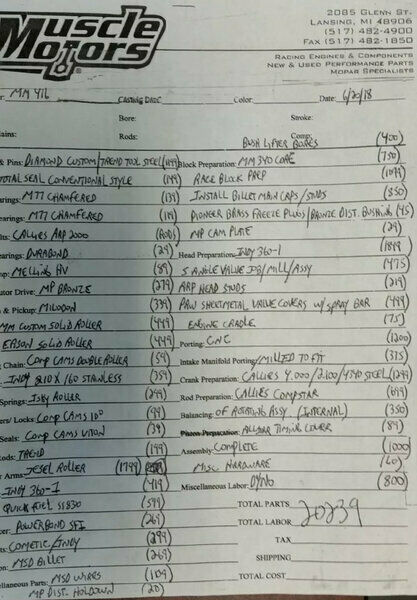 Muscle Motors
2085 GLENN ST.
LANSING, MI 48906
(517) 482-4900
FAX (517) 482-1850
RACING ENGINES & COMPONENTS
NEW & USED PERFORMANCE PARTS
MOPAR SPECIALISTS
MM 416 Casting Date: Color: Date: 6/20/18
Bore: Stroke:
Rods: Comp:
BUSH LIFTER BORES (400)
& Pins: DIAMOND CUSTOM/TREND TOOL STEEL Block Preparation: MM 340 CORE (750)
TOTAL SEAL CONVENTIONAL STYLE (199) RACE BLOCK PREP
M77 CHAMFERED (139) INSTALL BILLET MAIN CAPS/STUDS (850)
M77 CHAMFERED (119) PIONEER BRASS FREEZE PLUGS/BRONZE DIST. BUSHING (45)
CALLIES ARP 2000 (RODS) MP CAM PLATE (29)
DURABOND (29) Head Preparation: INDY 360-1 (1849)
MELLING HV (89) 5 ANGLE VALVE JOB/MILL/ASSY (475)
MP BRONZE (279) ARP HEAD STUDS (219)
& Pickup: MILODON (339) PAW SHEETMETAL VALVE COVERS W/SPRAY BAR (499)
MM CUSTOM SOLID ROLLER (449) ENGINE CRADLE (75)
SOLID ROLLER (449) Porting: CNC (1200)
Chain: COMP CAMS DOUBLE ROLLER (59) Intake Manifold Porting: MILLED TO FIT (315)
INDY 210 X 160 STAINLESS (359) Crank Preparation: CALLIES 4.000/2.100/4340 STEEL
Springs: ISKY ROLLER (299) Rod Preparation: CALLIES COMPSTAR (699)
/Locks: COMP CAMS 10° (99) Balancing: OF ROTATING ASSY. (INTERNAL) (350)
Seals: COMP CAMS VITON (39) ALLSTAR TIMING COVER (89)
TREND (199) Assembly: COMPLETE (1000)
Arms: JESEL ROLLER (1799) MISC HARDWARE (60)
INDY 360-1 (419) Miscellaneous Labor: DYNO (800)
QUICK FUEL SS830 (599) TOTAL PARTS
POWERBOND SFI (269) TOTAL LABOR 20239
COMETIC/INDY (299) TAX
MSD BILLET (269) SHIPPING
Parts: MSD WIRES (109) TOTAL COST
MP DIST. HOLDOWN (20)